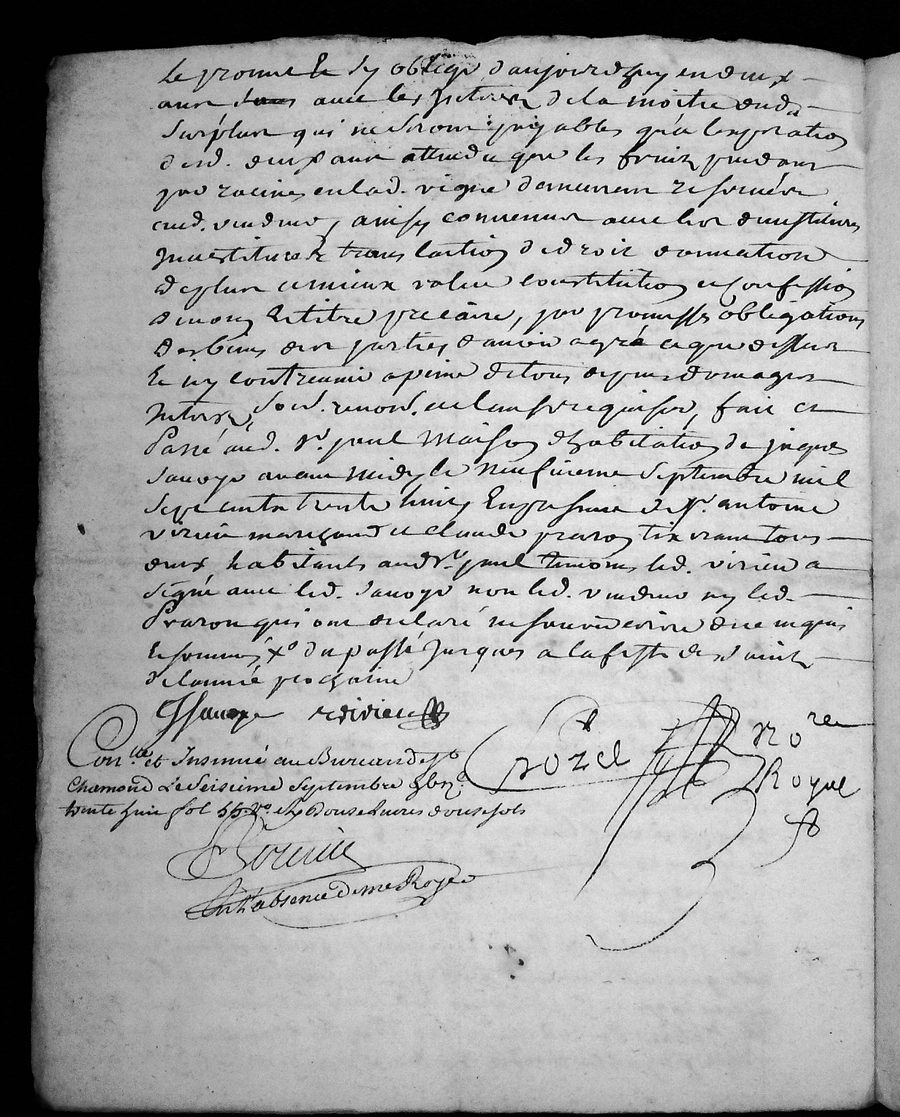 le promet et sy oblige d'aujourdhuy en deux
ans avec les interes de la moitié dud.
surplus qui ne seront payables qua lexpiration
desd. deux ans attendu que les fruits pendant
par racines en lad. vigne demeurent reservés
aud. vendeur, ainsy convenu avec les devestitures
investitures translation de droit donnation
de plus et mieux value constitution et confession
de nom et titre precaire, par promesses obligations
des biens des parties davoir agré ce que dessus
et ny contrevenir a peine de tous depens domages
interes, soub. renon. et clauses requises, fait et
Passé aud. St. paul Maison dhabitation de jacques
sauvage avant midy le neufvieme septembre mil
sept cents trente huit, En presence de Sr. antoine
virieu marchand et claude praron tixerant tous
deux habitants aud. St. paul temoins led. virieu a
signé avec led. Sauvage non led. vendeur ny led.
Praron qui ont declaré ne scavoir ecrire de ce enquis
et sommés
de lannée prochaine
JSauvage A virieu
Crozel
No.re
Royal
Con.lle et Insinué au Bureau de St
Chamond Le Seisieme Septembre
trente huit fol 55 vo. et Rx Douse livres douse sols
En L'absence de me Royer